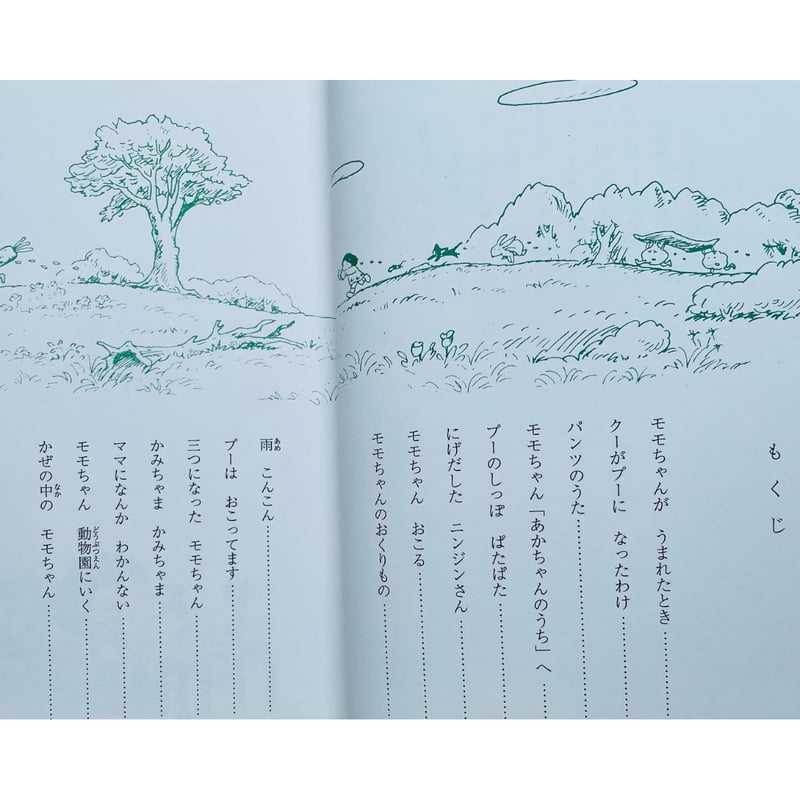 もくじ
モモちゃんが うまれたとき…………
クーがプーに なったわけ…………
パンツのうた…………………
モモちゃん「あかちゃんのうち」へ……
プーのしっぽ ぱたぱた…………
にげだした ニンジンさん…………
モモちゃん おこる………………
モモちゃんのおくりもの…………
雨 こんこん…………………
プーは おこってます…………
三つになった モモちゃん…………
かみちゃま かみちゃま…………
ママになんか わかんない…………
モモちゃん 動物園にいく…………
かぜの中の モモちゃん…………